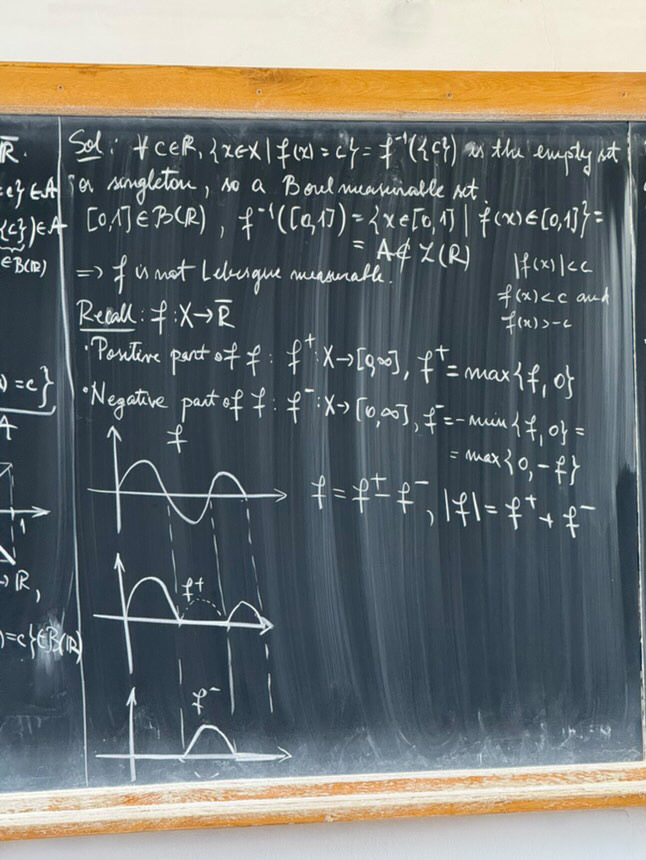 R̄.
=c} ∈ A
{c}) ∈ A
∈ B(R)
) = c}
A
1
→ R,
) = c} ∈ B(R)
Sol: ∀ c∈R, {x∈X | f(x) = c} = f⁻¹({c}) is the empty set
or singleton, so a Borel measurable set.
[0,1] ∈ B(R), f⁻¹([0,1]) = {x∈[0,1] | f(x) ∈ [0,1]} =
= A ∉ L(R)
⇒ f is not Lebesgue measurable.
|f(x)| < c
f(x) < c and
f(x) > -c
Recall: f: X → R̄
· Positive part of f: f⁺: X → [0,∞], f⁺ = max{f, 0}
· Negative part of f: f⁻: X → [0,∞], f⁻ = -min{f, 0} =
= max{0, -f}
f
f = f⁺ - f⁻, |f| = f⁺ + f⁻
f⁺
f⁻